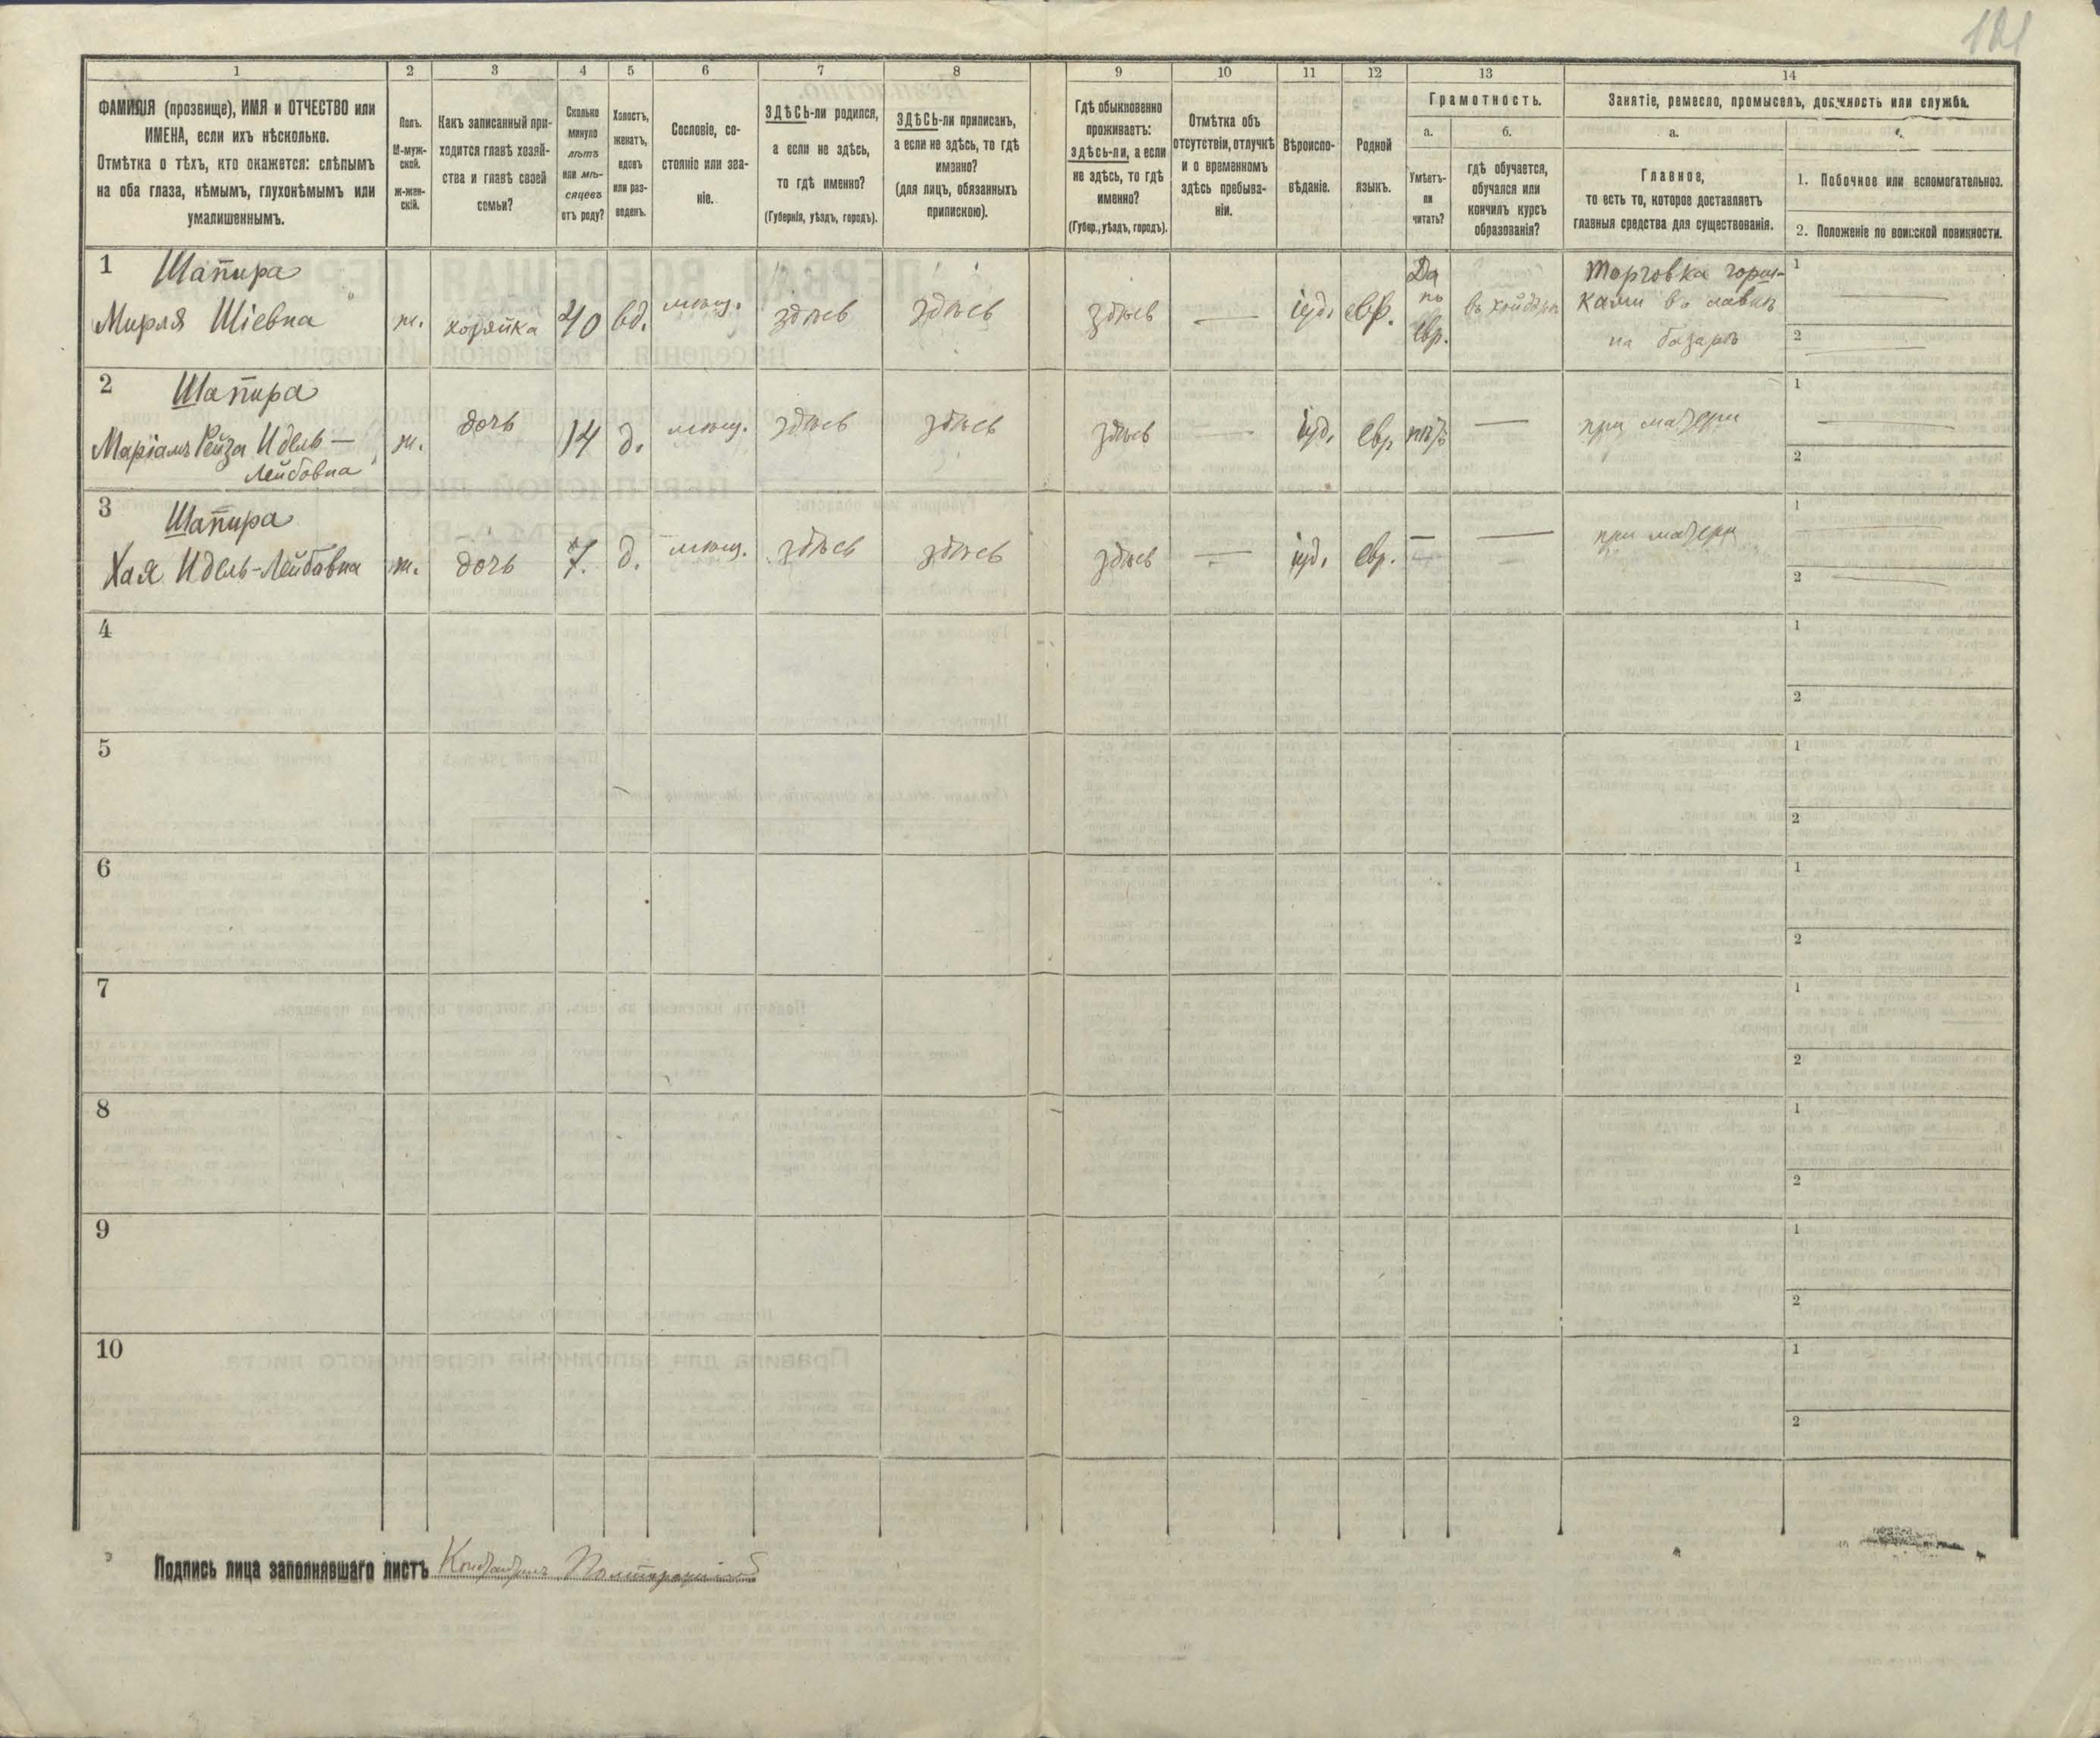 101
1
2
3
4
5
6
7
8
9
10
11
12
13
14
ФАМИЛІЯ (прозвище), ИМЯ и ОТЧЕСТВО или
ИМЕНА, если ихъ нѣсколько.
Отмѣтка о тѣхъ, кто окажется: слѣпымъ
на оба глаза, нѣмымъ, глухонѣмымъ или
умалишеннымъ.
Полъ.
М-муж-
ской.
ж-жен-
скій.
Какъ записанный при-
ходится главѣ хозяй-
ства и главѣ своей
семьи?
Сколько
минуло
лѣтъ
или мѣ-
сяцевъ
отъ роду?
Холостъ,
женатъ,
вдовъ
или раз-
веденъ.
Сословіе, со-
стояніе или зва-
ніе.
ЗДѢСЬ-ли родился,
а если не здѣсь,
то гдѣ именно?
(Губернія, уѣздъ, городъ).
ЗДѢСЬ-ли приписанъ,
а если не здѣсь, то гдѣ
именно?
(для лицъ, обязанныхъ
припискою).
Гдѣ обыкновенно
проживаетъ:
здѣсь-ли, а если
не здѣсь, то гдѣ
именно?
(Губер., уѣздъ, городъ).
Отмѣтка объ
отсутствіи, отлучкѣ
и о временномъ
здѣсь пребыва-
ніи.
Вѣроиспо-
вѣданіе.
Родной
языкъ.
Грамотность.
а.
Умѣетъ-
ли
читать?
б.
гдѣ обучается,
обучался или
кончилъ курсъ
образованія?
Занятіе, ремесло, промыселъ, должность или служба.
а.
Главное,
то есть то, которое доставляетъ
главныя средства для существованія.
1. Побочное или вспомогательное.
2. Положеніе по воинской повинности.
1 Шапира
Мирля Шіевна
ж.
хозяйка
40
вд.
мѣщ.
здѣсь
здѣсь
здѣсь
—
іуд.
евр.
Да
по
евр.
въ хейдерѣ
Торговка горш-
ками въ лавкѣ
на базарѣ
1 —
2 —
2 Шапира
Маріамъ Рейза Идель-
Лейбовна
ж.
дочь
14
д.
мѣщ.
здѣсь
здѣсь
здѣсь
—
іуд.
евр
нѣтъ
—
при матери
1 —
2
3 Шапира
Хая Идель-Лейбовна
ж.
дочь
7.
д.
мѣщ.
здѣсь
здѣсь
здѣсь
—
іуд.
евр.
—
—
при матери
1 —
2 —
4
1
2
5
1
2
6
1
2
7
1
2
8
1
2
9
1
2
10
1
2
Подпись лица заполнявшаго листъ Константинъ